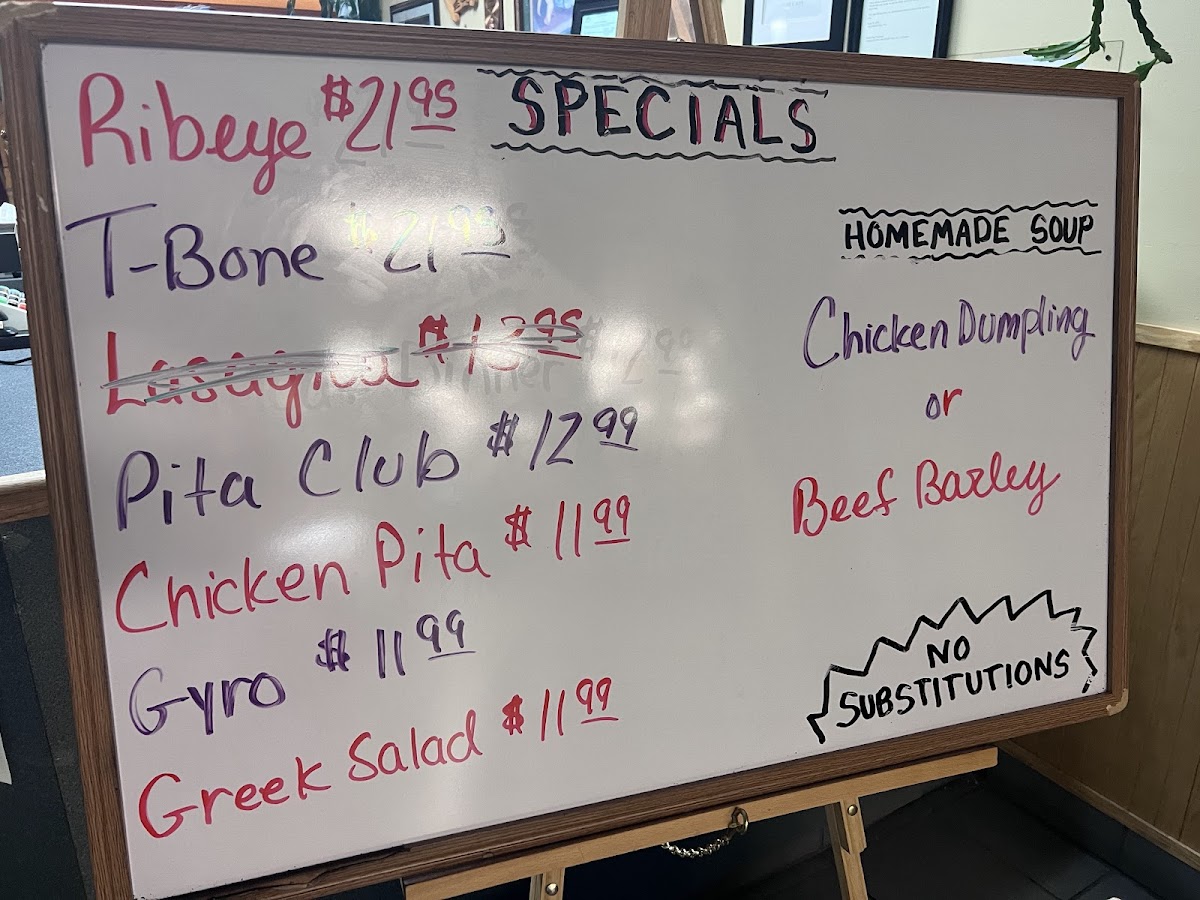 SPECIALS
Ribeye $21.95
T-Bone $21.99
Lasagna $13.95
Pita Club $12.99
Chicken Pita $11.99
Gyro $11.99
Greek Salad $11.99
HOMEMADE SOUP
Chicken Dumpling
or
Beef Barley
NO
SUBSTITUTIONS